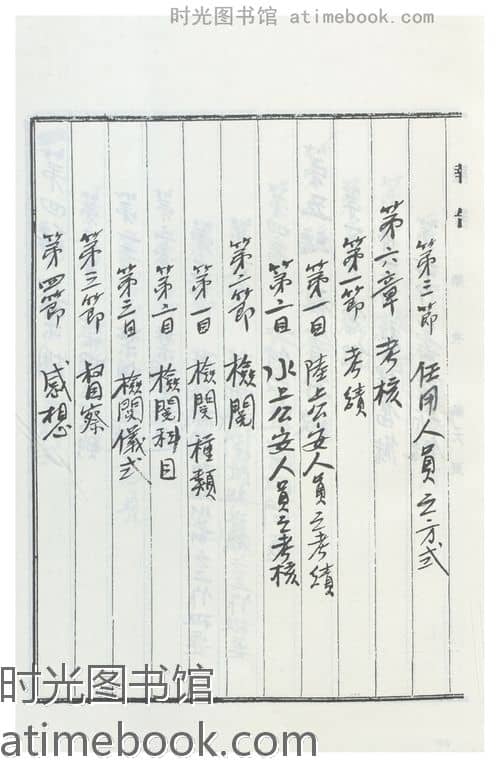 时光图书馆 atimebook.com
第三節 任用人員之方式
第六章 考核
第一節 考績
第一目 陸上公安人員之考績
第二目 水上公安人員之考核
第二節 檢閱
第一目 檢閱種類
第二目 檢閱科目
第三目 檢閱儀式
第三節 督察
第四節 感想
时光图书馆
atimebook.com